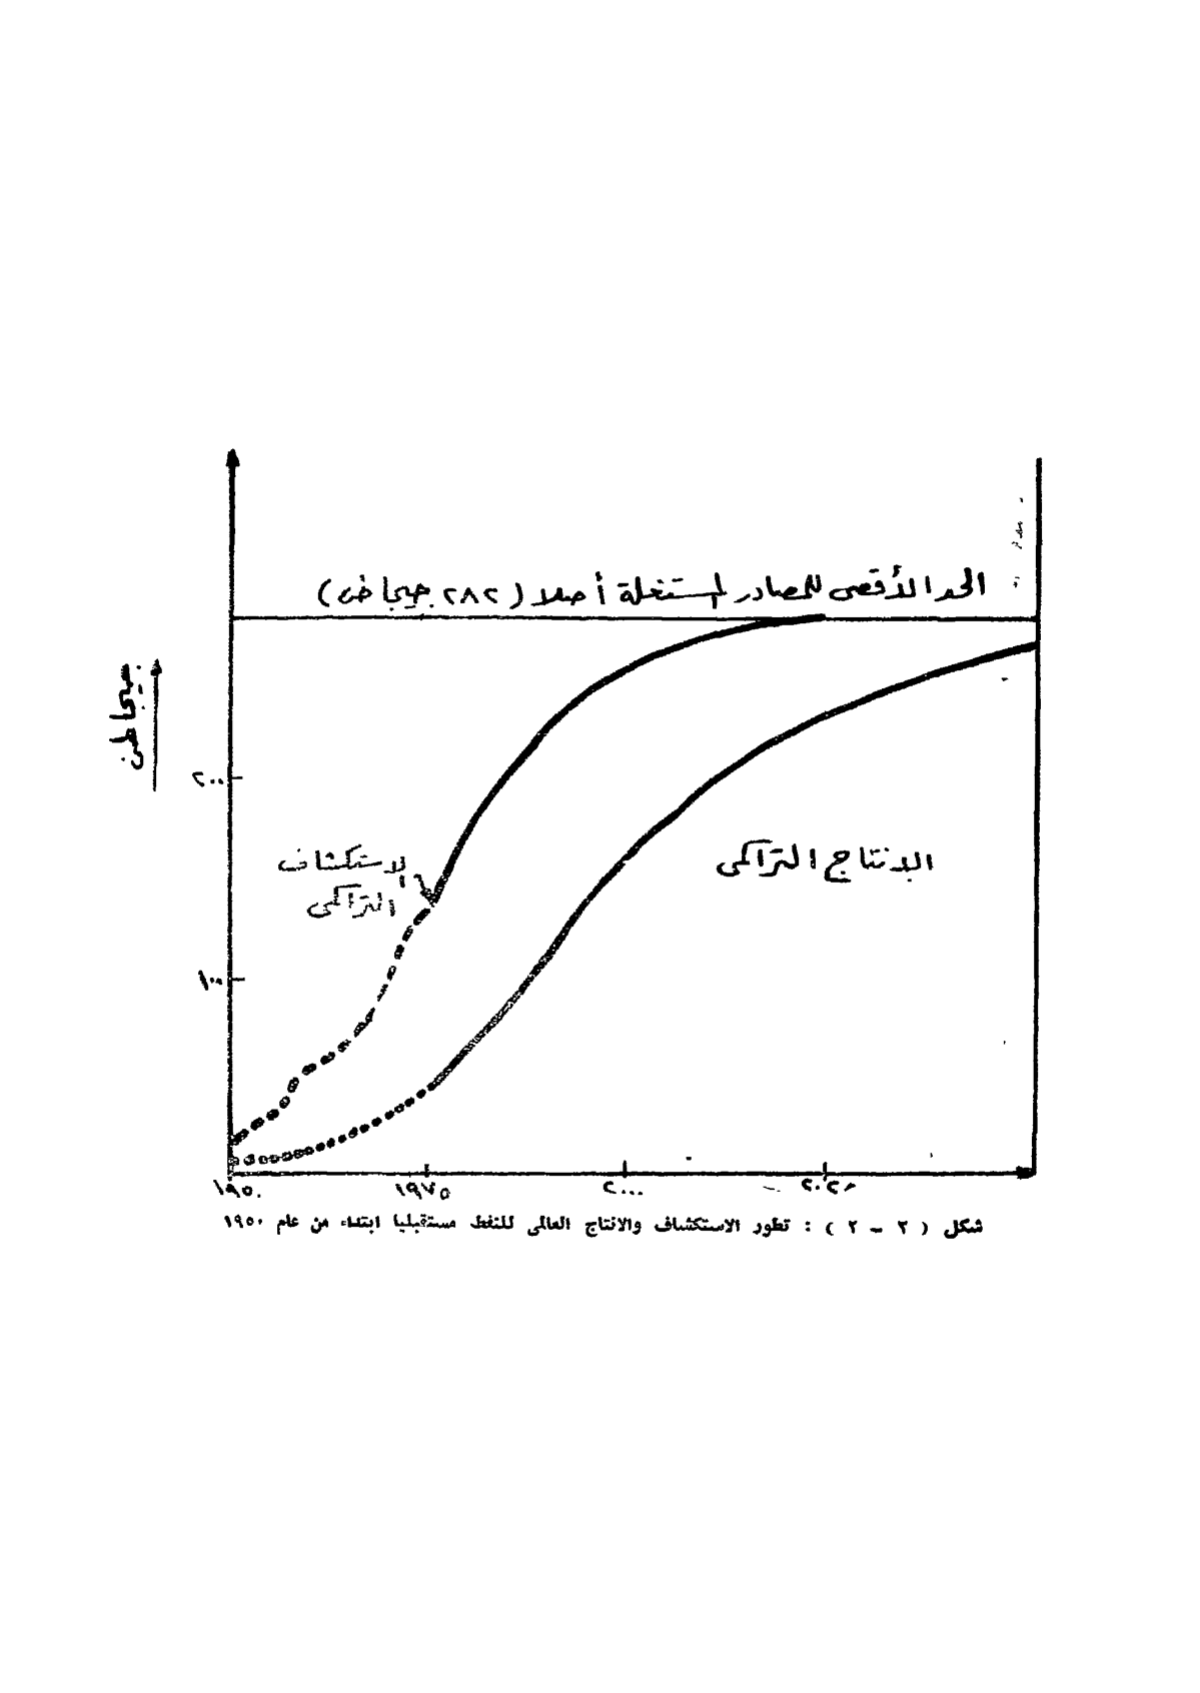 الحد الأقصى للمصادر المستغلة أصلا (٢٨٢ جيجاطن)
جيجاطن
٢٠٠
الاستكشاف
التراكمى
الانتاج التراكمى
١٠٠
١٩٥٠
١٩٧٥
٢٠٠٠
٢٠٢٥
شكل ( ٢ – ٢ ) : تطور الاستكشاف والانتاج العالمى للنفط مستقبليا ابتداء من عام ١٩٥٠